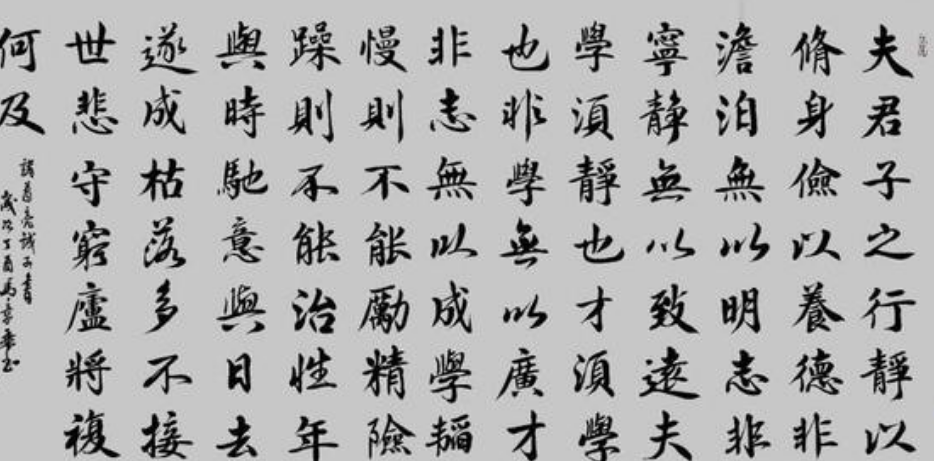 夫君子之行靜以
脩身儉以養德非
澹泊無以明志非
寧靜無以致遠夫
學須靜也才須學
也非學無以廣才
非志無以成學韜
慢則不能勵精險
躁則不能治性年
與時馳意與日去
遂成枯落多不接
世悲守窮廬將複
何及
諸葛亮誡子書
歲次丁酉馬